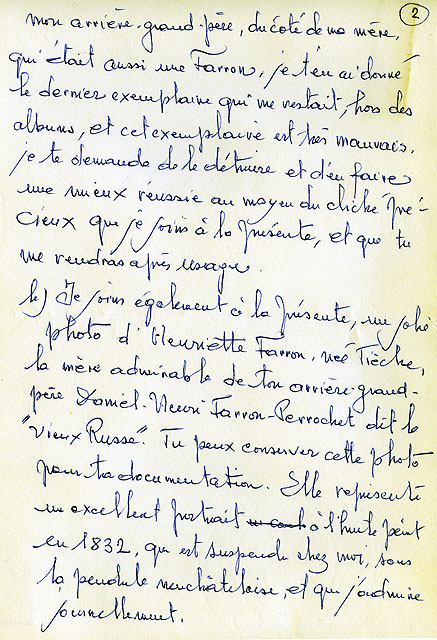 2
mon arrière-grand-père, du côté de ma mère,
qui était aussi une Farron, je t'en ai donné
le dernier exemplaire qui me restait, hors des
albums, et cet exemplaire est très mauvais.
je te demande de le détruire et d'en faire
une mieux réussie au moyen du cliché pré-
cieux que je joins à la présente, et que tu
me rendras après usage.
b) Je joins également à la présente, une jolie
photo d'Henriette Farron, née Tièche,
la mère admirable de ton arrière-grand-
père Daniel-Henri Farron-Perrochet dit le
"Vieux Russe". Tu peux conserver cette photo
pour ta documentation. Elle représente
un excellent portrait à l'huile peint
en 1832, qui est suspendu chez moi, sous
la pendule neuchâteloise, et que j'admire
journellement.